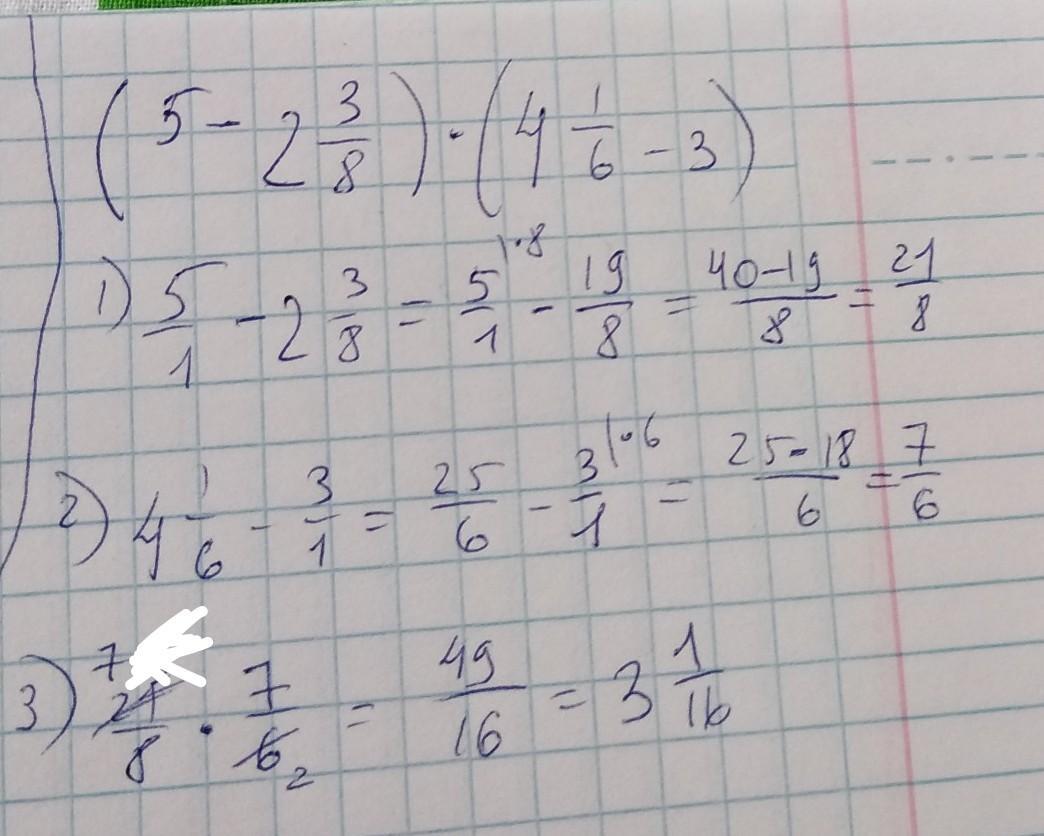 (5 - 2 3/8) · (4 1/6 - 3)
1) 5/1 - 2 3/8 = 5/1 |·8 - 19/8 = 40-19/8 = 21/8
2) 4 1/6 - 3/1 = 25/6 - 3/1 |·6 = 25-18/6 = 7/6
3) 7 21/8 · 7/6 2 = 49/16 = 3 1/16